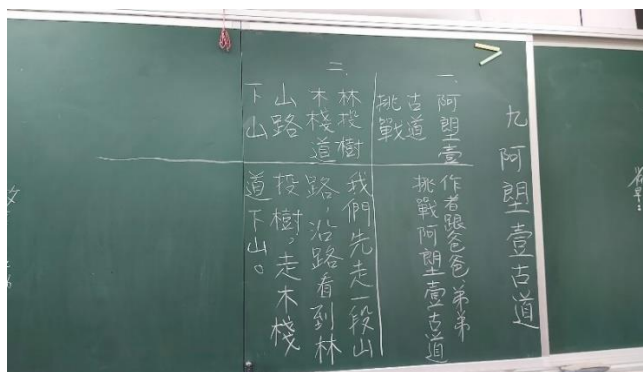 九 阿塱壹古道
一、阿塱壹
古道
挑戰
作者跟爸爸弟弟
挑戰阿塱壹古道
二、
林投樹
木棧道
山路
下山
我們先走一段山
路，沿路看到林
投樹，走木棧
道下山。